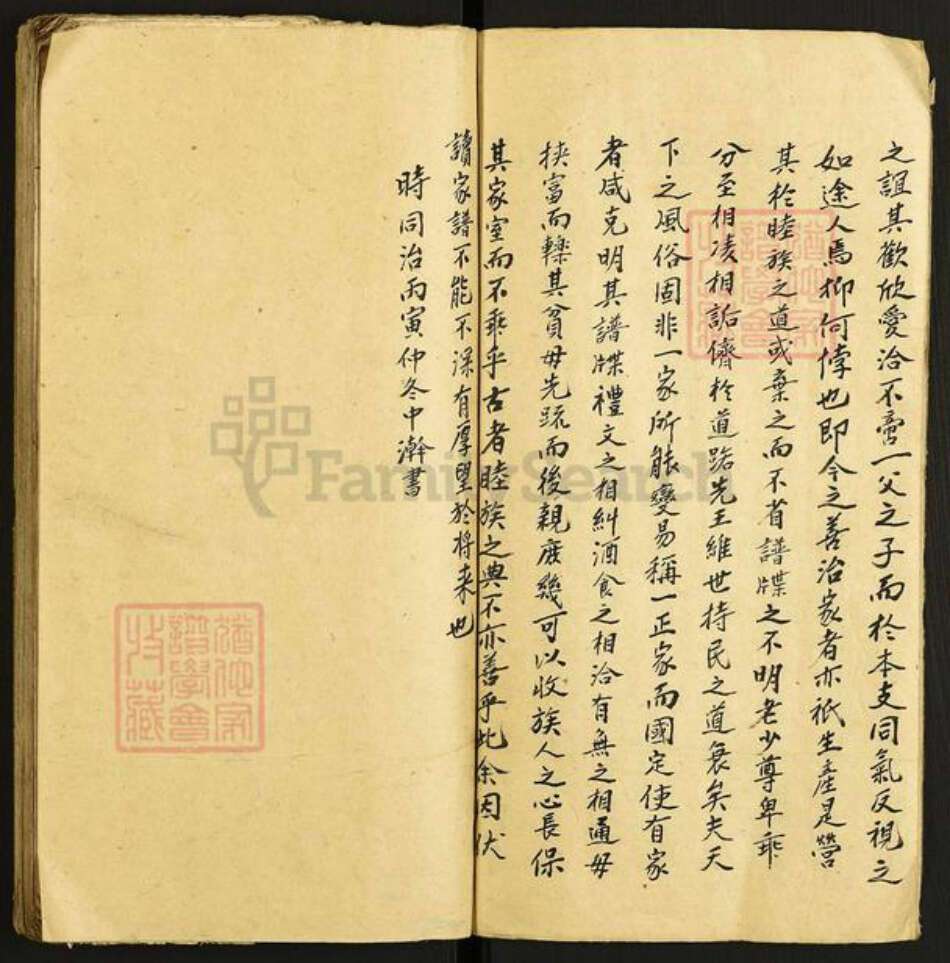 之誼其歡欣愛洽不啻一父之子而於本支同氣反視之
如途人焉抑何悖也即今之善治家者亦祇生產是營
其於睦族之道或棄之而不省譜牒之不明老少尊卑乖
分至相凌相詬儕於道路先王維世持民之道衰矣夫天
下之風俗固非一家所能變易稱一正家而國定使有家
者咸克明其譜牒禮文之相糾酒食之相洽有無之相通毋
挾富而轢其貧毋先疏而後親庶幾可以收族人之心長保
其家室而不乖乎古者睦族之典不亦善乎此余因伏
讀家譜不能不深有厚望於將来也
時同治丙寅仲冬中澣書
譜學會
收藏
FamilySearch